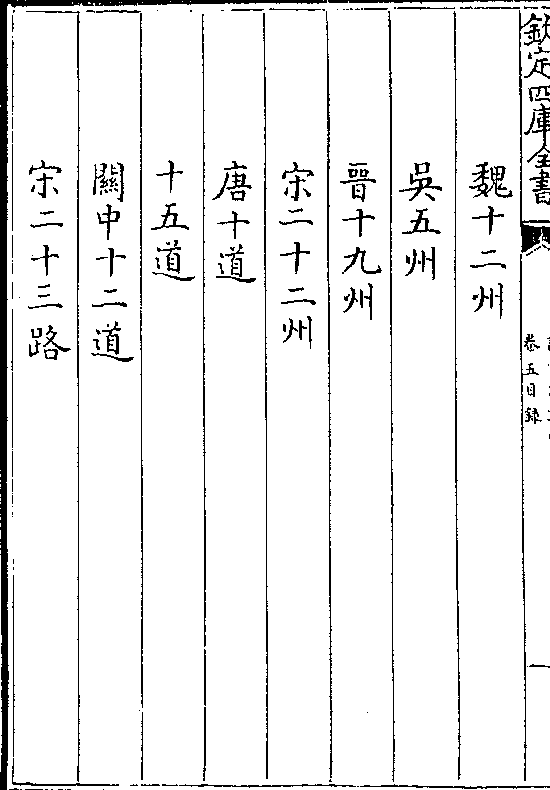 欽定四庫全書
卷五目錄
魏十二州
吳五州
晉十九州
宋二十二州
唐十道
十五道
關中十二道
宋二十三路